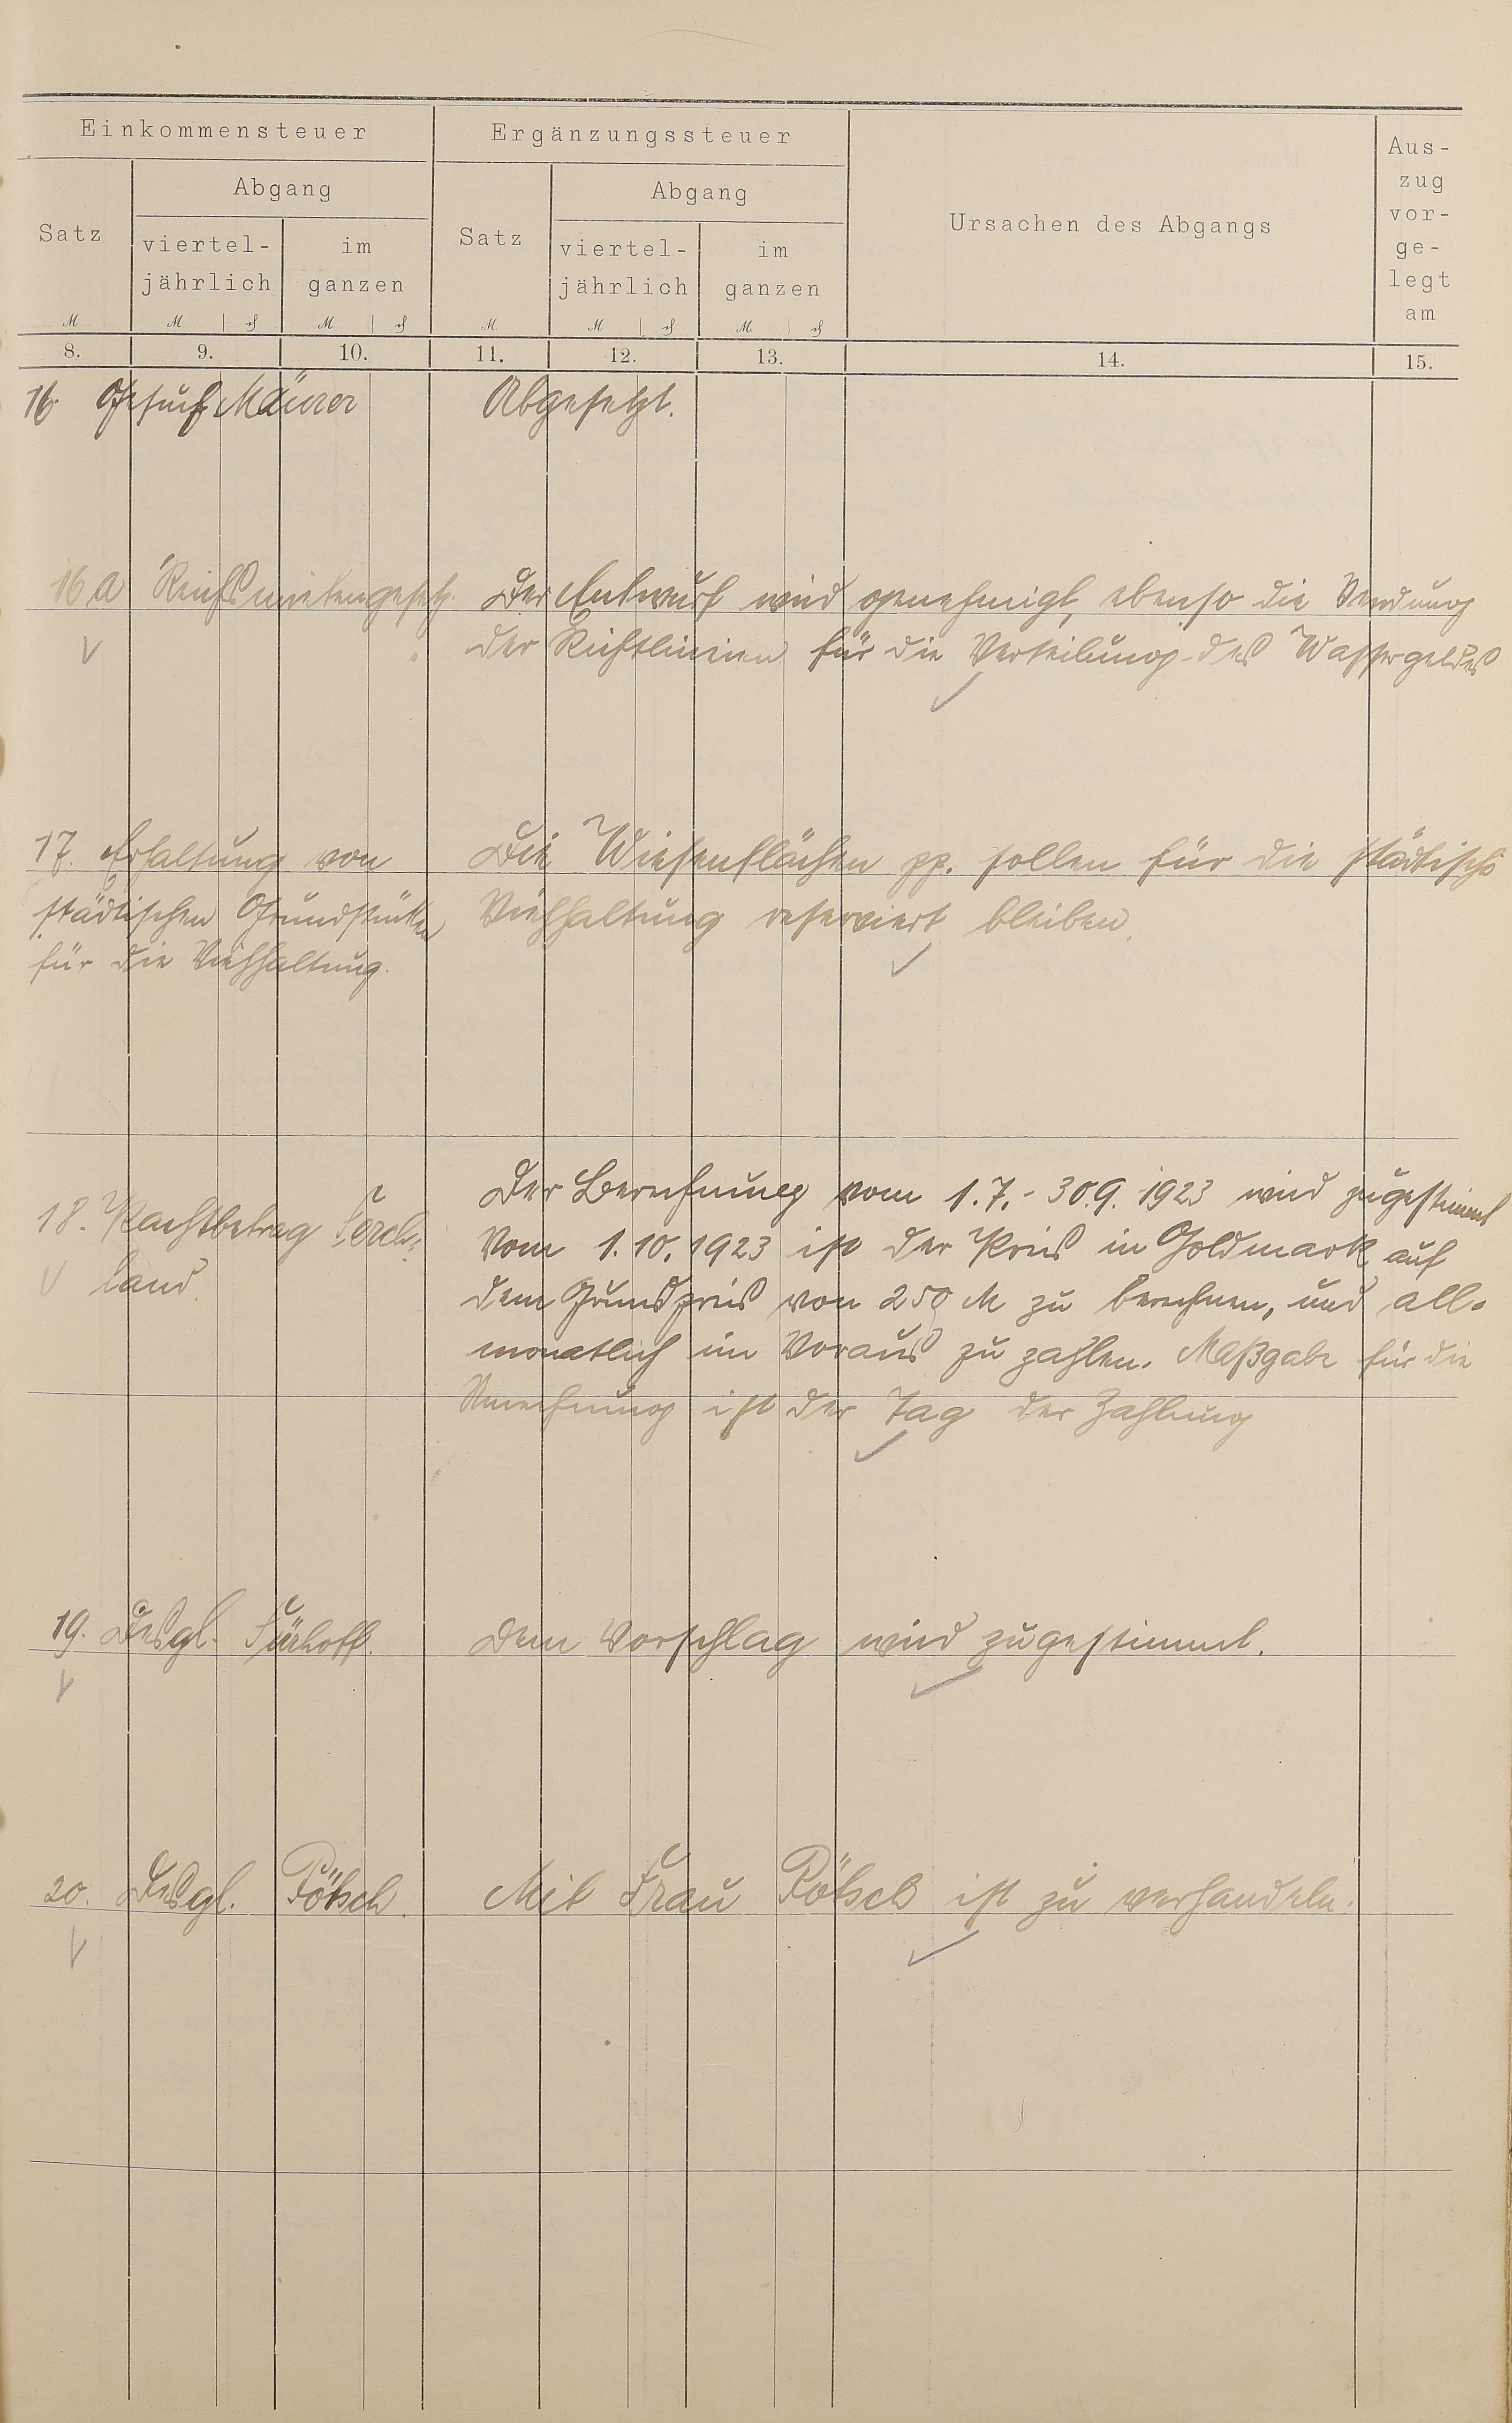 Einkommensteuer
Ergänzungssteuer
Ursachen des Abgangs
Aus-
zug
vor-
ge-
legt
am
Satz
Abgang
viertel-
jährlich
im
ganzen
Satz
Abgang
viertel-
jährlich
im
ganzen
M M ₰ M ₰ M M ₰ M ₰
8. 9. 10. 11. 12. 13. 14. 15.
16. Gesuch Mäurer
Abgesetzt.
16a Reichsmietengesetz.
Der Entwurf wird genehmigt, ebenso die
der Richtlinien für die Verteilung des Wassergeldes
17. Erhaltung von
städtischen Grundstücken
für die Viehhaltung.
Die Wiesenflächen pp. sollen für die städtische
Viehhaltung reserviert bleiben.
18. Pachtbetrag
land.
Der Berechnung vom 1.7.-30.9.1923 wird zugestimmt
Vom 1.10.1923 ist der Preis in Goldmark auf
dem Grundpreis von 250 M zu berechnen, und all-
monatlich im Voraus zu zahlen. Maßgabe für die
Umrechnung ist der Tag der Zahlung
19. Desgl.
Dem Vorschlag wird zugestimmt.
20. Desgl. Pötsch.
Mit Frau Pötsch ist zu verhandeln.